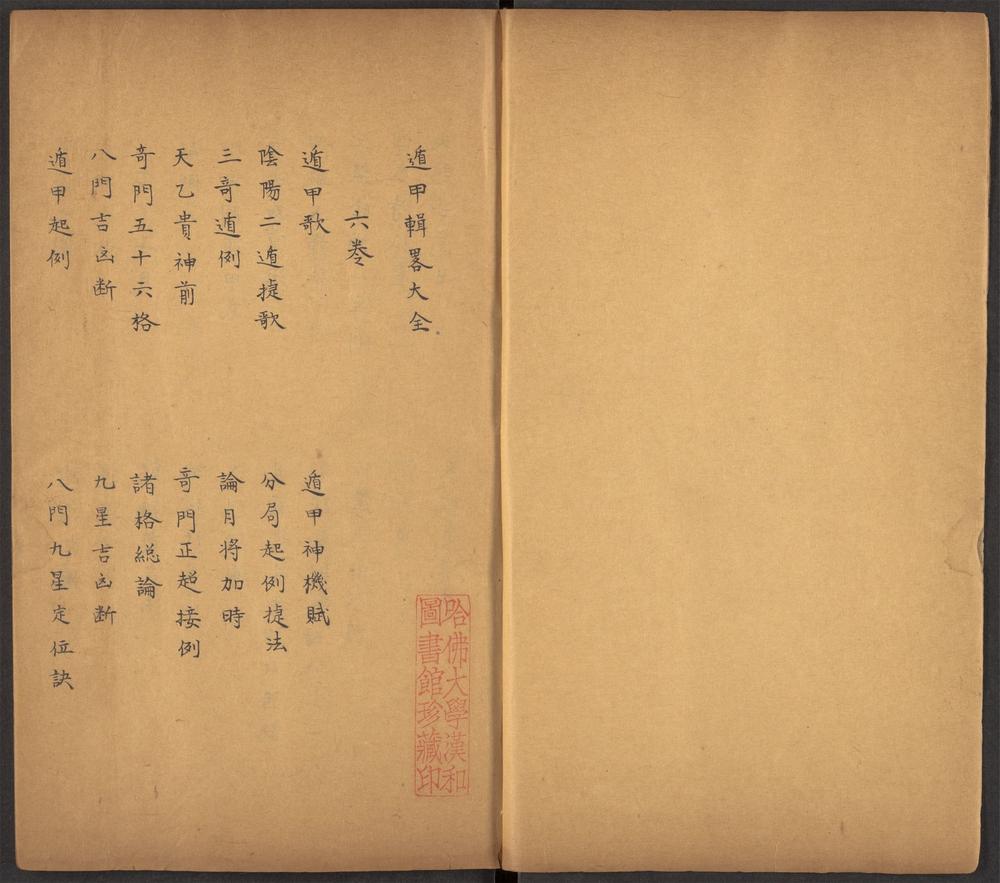 遁甲輯畧大全
六卷
遁甲歌
遁甲神機賦
陰陽二遁㨗歌
分局起例㨗法
三竒遁例
論月将加時
天乙貴神前
竒門正超接例
竒門五十六格
諸格総論
八門吉㐫断
九星吉㐫断
遁甲起例
八門九星定位訣
哈佛大學漢和
圖書館珍藏印